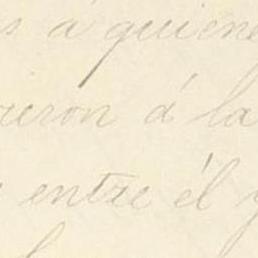 s á quiene
uron á la
entre él y